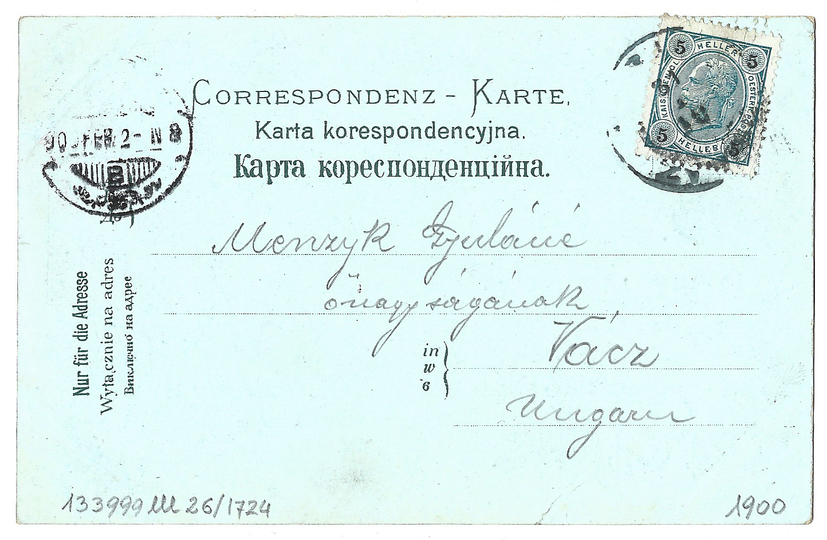 CORRESPONDENZ - KARTE.
Karta korespondencyjna.
Карта кореспонденційна.
5 HELLER 5
5 HELLER
900 FEB 2 - N 8
B
Menzyk Gyuláné
őnagyságának
in
w
в
Vácz
Ungarn
Nur für die Adresse
Wyłącznie na adres
Виключно на адрес
133999 26/1724
1900